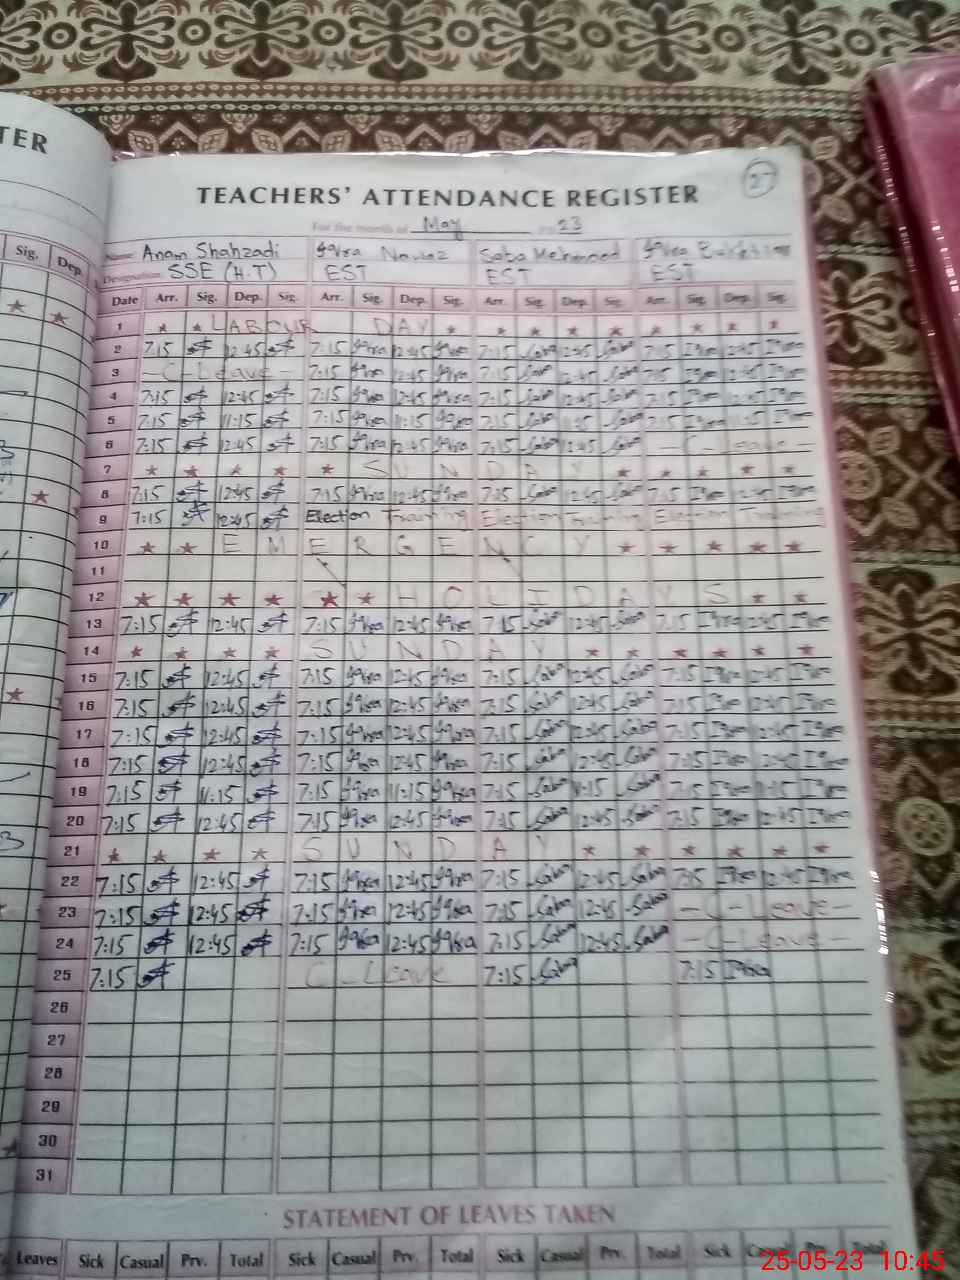 TER
27
TEACHERS' ATTENDANCE REGISTER
For the month of May 23
Name: Anam Shahzadi Iqra Nawaz Saba Mehmood Iqra
Designation SSE (H.T) EST EST EST
Sig. Dep. Date Arr. Sig. Dep. Sig. Arr. Sig. Dep. Sig. Arr. Sig. Dep. Sig. Arr. Sig. Dep. Sig.
1 LABOUR DAY
2 7:15 12:45 7:15 Iqra 12:45 Iqra 7:15 Saba 12:45 Saba 7:15 Iqra 12:45 Iqra
3 - C - Leave - 7:15 Iqra 12:45 Iqra 7:15 Saba 12:45 Saba 7:15 Iqra 12:45 Iqra
4 7:15 12:45 7:15 Iqra 12:45 Iqra 7:15 Saba 12:45 Saba 7:15 Iqra 12:45 Iqra
5 7:15 11:15 7:15 Iqra 11:15 Iqra 7:15 Saba 11:15 Saba 7:15 Iqra 11:15 Iqra
6 7:15 12:45 7:15 Iqra 12:45 Iqra 7:15 Saba 12:45 Saba - C - Leave
7 SUNDAY
8 7:15 12:45 7:15 Iqra 12:45 Iqra 7:15 Saba 12:45 Saba 7:15 Iqra 12:45 Iqra
9 7:15 12:45 Election Training Election Training Election Training
10 EMERGENCY
11
12 HOLIDAYS
13 7:15 12:45 7:15 Iqra 12:45 Iqra 7:15 Saba 12:45 Saba 7:15 Iqra 12:45 Iqra
14 SUNDAY
15 7:15 12:45 7:15 Iqra 12:45 Iqra 7:15 Saba 12:45 Saba 7:15 Iqra 12:45 Iqra
16 7:15 12:45 7:15 Iqra 12:45 Iqra 7:15 Saba 12:45 Saba 7:15 Iqra 12:45 Iqra
17 7:15 12:45 7:15 Iqra 12:45 Iqra 7:15 Saba 12:45 Saba 7:15 Iqra 12:45 Iqra
18 7:15 12:45 7:15 Iqra 12:45 Iqra 7:15 Saba 12:45 Saba 7:15 Iqra 12:45 Iqra
19 7:15 11:15 7:15 Iqra 11:15 Iqra 7:15 Saba 11:15 Saba 7:15 Iqra 11:15 Iqra
20 7:15 12:45 7:15 Iqra 12:45 Iqra 7:15 Saba 12:45 Saba 7:15 Iqra 12:45 Iqra
21 SUNDAY
22 7:15 12:45 7:15 Iqra 12:45 Iqra 7:15 Saba 12:45 Saba 7:15 Iqra 12:45 Iqra
23 7:15 12:45 7:15 Iqra 12:45 Iqra 7:15 Saba 12:45 Saba - C - Leave -
24 7:15 12:45 7:15 Iqra 12:45 Iqra 7:15 Saba 12:45 Saba - C - Leave -
25 7:15 C - Leave 7:15 Saba 7:15 Iqra
26
27
28
29
30
31
STATEMENT OF LEAVES TAKEN
Leaves Sick Casual Prv. Total Sick Casual Prv. Total Sick Casual Prv. Total Sick Casual Prv. Total
25-05-23 10:45